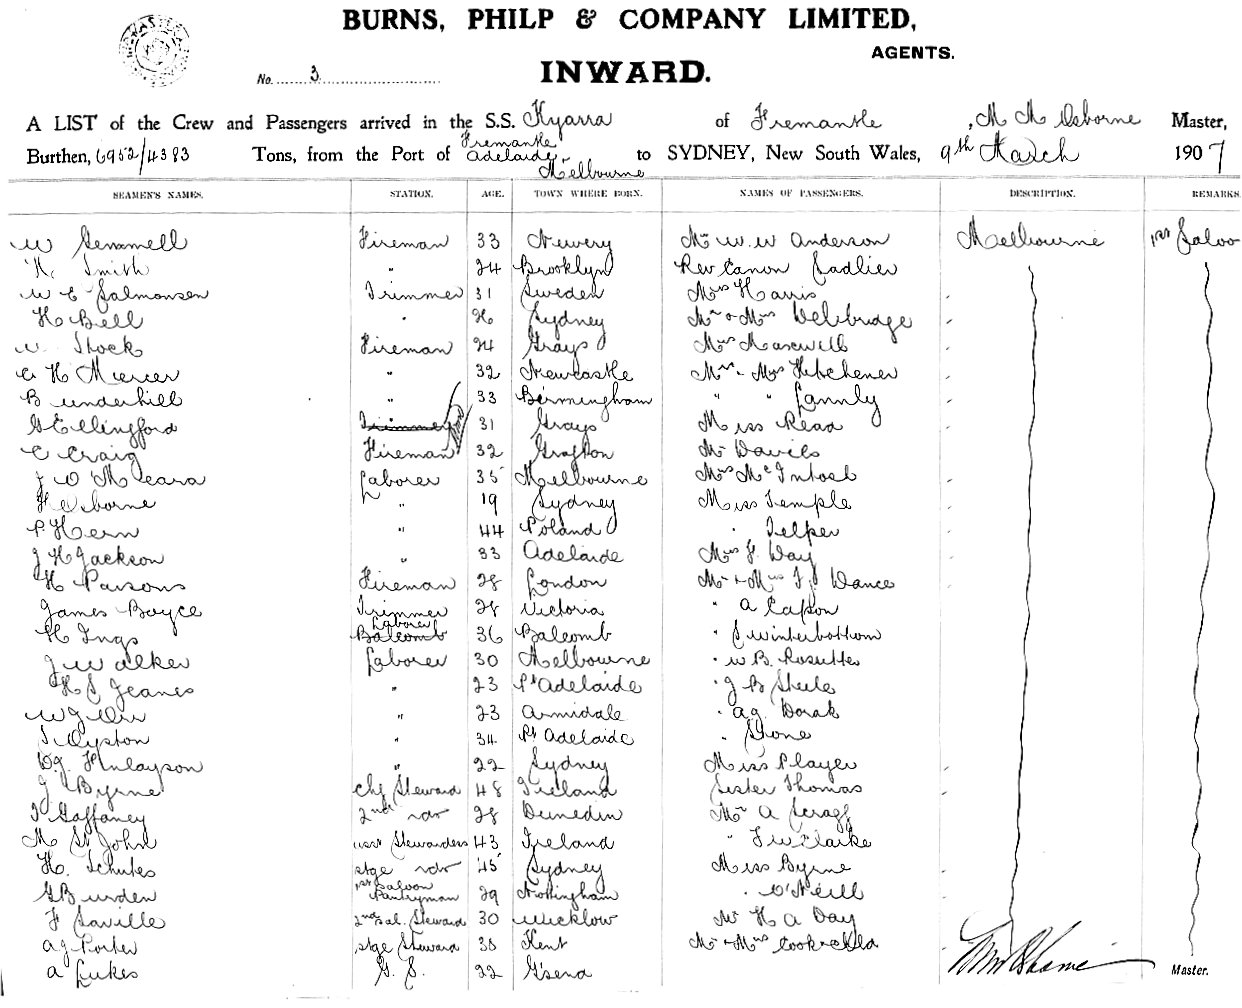 BURNS, PHILP & COMPANY LIMITED,
AGENTS.
No. 3
INWARD.
A LIST of the Crew and Passengers arrived in the S.S. Kyarra of Fremantle, M M Osborne Master,
Burthen, 6952/4383 Tons, from the Port of Fremantle Adelaide Melbourne to SYDNEY, New South Wales, 9th March 1907
SEAMEN'S NAMES. STATION. AGE. TOWN WHERE BORN. NAMES OF PASSENGERS. DESCRIPTION. REMARKS
W Gemmell Fireman 33 Newery Mr W. W Anderson Melbourne 1st Saloo
H. Smith " 24 Brooklyn Rev Canon Sadlier
W E Salmonsen Trimmer 31 Sweden Mrs Harris
H Bell " 26 Sydney Mr & Mrs Delbridge
W. Shock Fireman 24 Grays Mrs Maxwell
C H Mercer " 32 Newcastle Mr & Mrs Hitchener
B Underhill " 33 Birmingham " "
G Ellingford Trimmer 31 Grays Miss Read
C Craig Fireman 32 Grafton Mr Davies
J O'Meara Laborer 35 Melbourne Mrs McIntosh
H Osborne " 19 Sydney Miss Temple
P Hern " 44 Poland " Telfer
J H Jackson " 33 Adelaide Mrs F. Day
H Parsons Fireman 28 London Mr & Mrs F. Dance
James Boyce Trimmer 28 Victoria " A
H Ings Balcomb Laborer 36 Balcomb " S Winterbottom
J Walker Laborer 30 Melbourne " W B.
H S Jeanes " 23 Pt Adelaide " J B Steele
W J Orr " 23 Armidale " A G.
Oyston " 34 Pt Adelaide " Stone
Finlayson " 22 Sydney Miss Player
J Byrne Chf Steward 48 Ireland Sister Thomas
T Gaffaney 2nd do 28 Dunedin Mr A Scragg
M St John Stewardess 43 Ireland " F W Clarke
H. Schutes stge do 45 Sydney Miss Byrne
G Burden 1st Saloon Pantryman 29 Nottingham " O'Neill
F Saville 2nd Sal. Steward 30 Wicklow Mr H A Day
A J Porter stge Steward 38 Kent Mr & Mrs
A Lukes G. S. 22 G'send
Master.